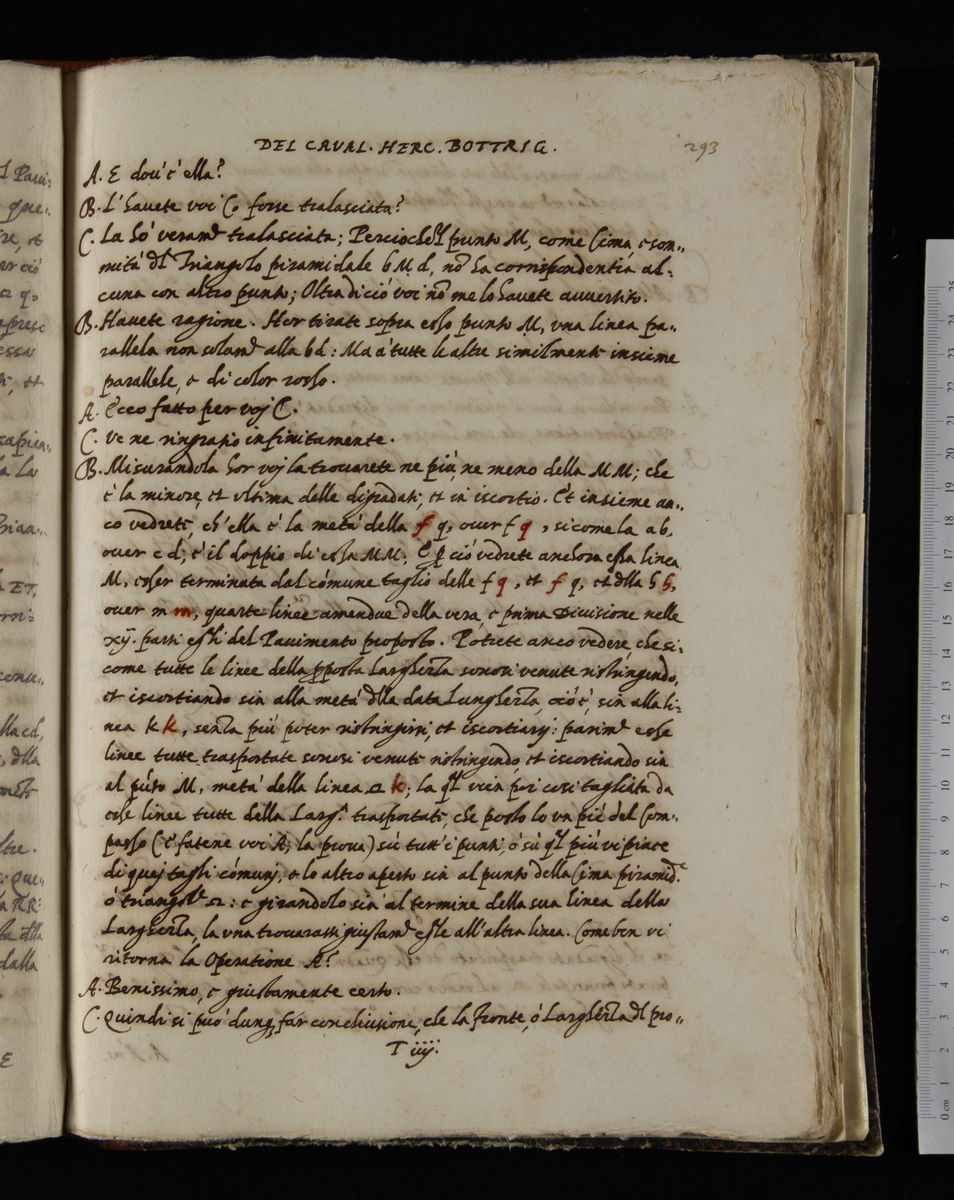 DEL CAVAL. HERC. BOTTRIG. 293
A. E dou'è ella?
B. L'hauete voi C. forse tralasciata?
C. La hò veram.te tralasciata; Perciochè'l punto M, come Cima, e som„
mità dl Triangolo piramidale b M d, nõ ha corrispondentia al„
cuna con altro punto; Oltra di ciò voi nõ me lo hauete auuertito.
B. Hauete ragione. Hor tirate sopra esso punto M, vna linea pa„
rallela non solam.te alla bd: Ma à tutte le altre similmente insieme
parallele, e di color rosso.
A. Ècco fatto per voj C.
C. Ve ne ringratio infinitamente.
B. Misurandola hor voj la trouarete ne più, ne meno della MM; che
è la minore, et vltima delle digradate, et in iscortio. Et insieme an„
co vedrete, ch'ella è la metà della f q, ouer f q, si come la ab,
ouer cd, è il doppio di essa MM. E p ciò vedrete anchora essa linea
M, esser terminata dal cómune taglio delle f q, et f q, et dlla h h,
ouer m m, quarte linee amendue della vera, e prima Diuisione nelle
xij. parti essli del Pauimento proposto. Potrete anco vedere, che si„
come tutte le linee della pposta Largheza sonosi venute ristringendo,
et iscortiando sin alla metà dlla data Lungheza, ciò è, sin alla li„
nea k k, senza più poter ristringirsi, et iscortiarsj: parim.te esse
linee tutte trasportate sonosi venute ristringendo, et iscortiando sin
al púto M, metà della linea a k; la ql vien poi così tagliata da
esse linee tutte della Larg.a trasportate, che posto lo vn piè del Com„
passo (è fatene voi A, la proua) sù tutt'i punti, ò sù ql più vi piace
di quej tagli cómunj, e lo altro aperto sin al punto della Cima piramid.e
ò triangol.e : e girandolo sin'al termine della sua linea della
Largheza, la vna trouarassi giustam.te essle all'altra linea. Come ben vi
ritorna la Operatione A?
A. Benissimo, e giustamente certo.
C. Quindi si può dunq far conchiusione, che la Fronte, ò Largheza dl pro„
T iiij.